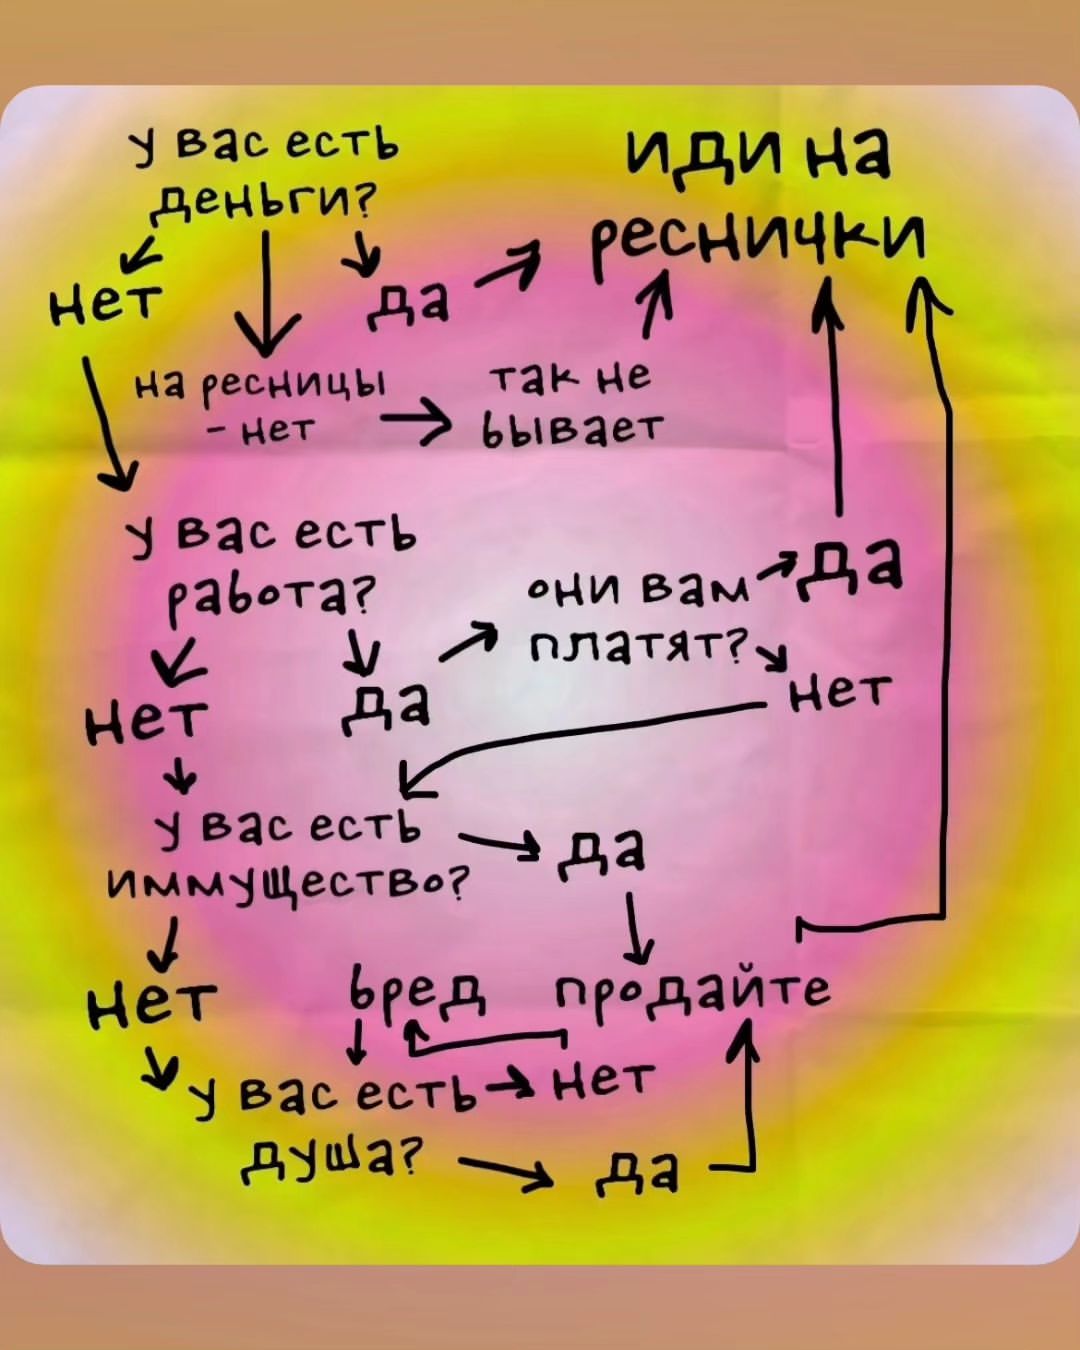 у вас есть
деньги?
иди на
реснички
нет
да
на ресницы
- нет
так не
бывает
у вас есть
работа?
они вам
платят?
да
нет
нет
да
у вас есть
иммущество?
да
нет
бред
продайте
у вас есть
душа?
нет
да